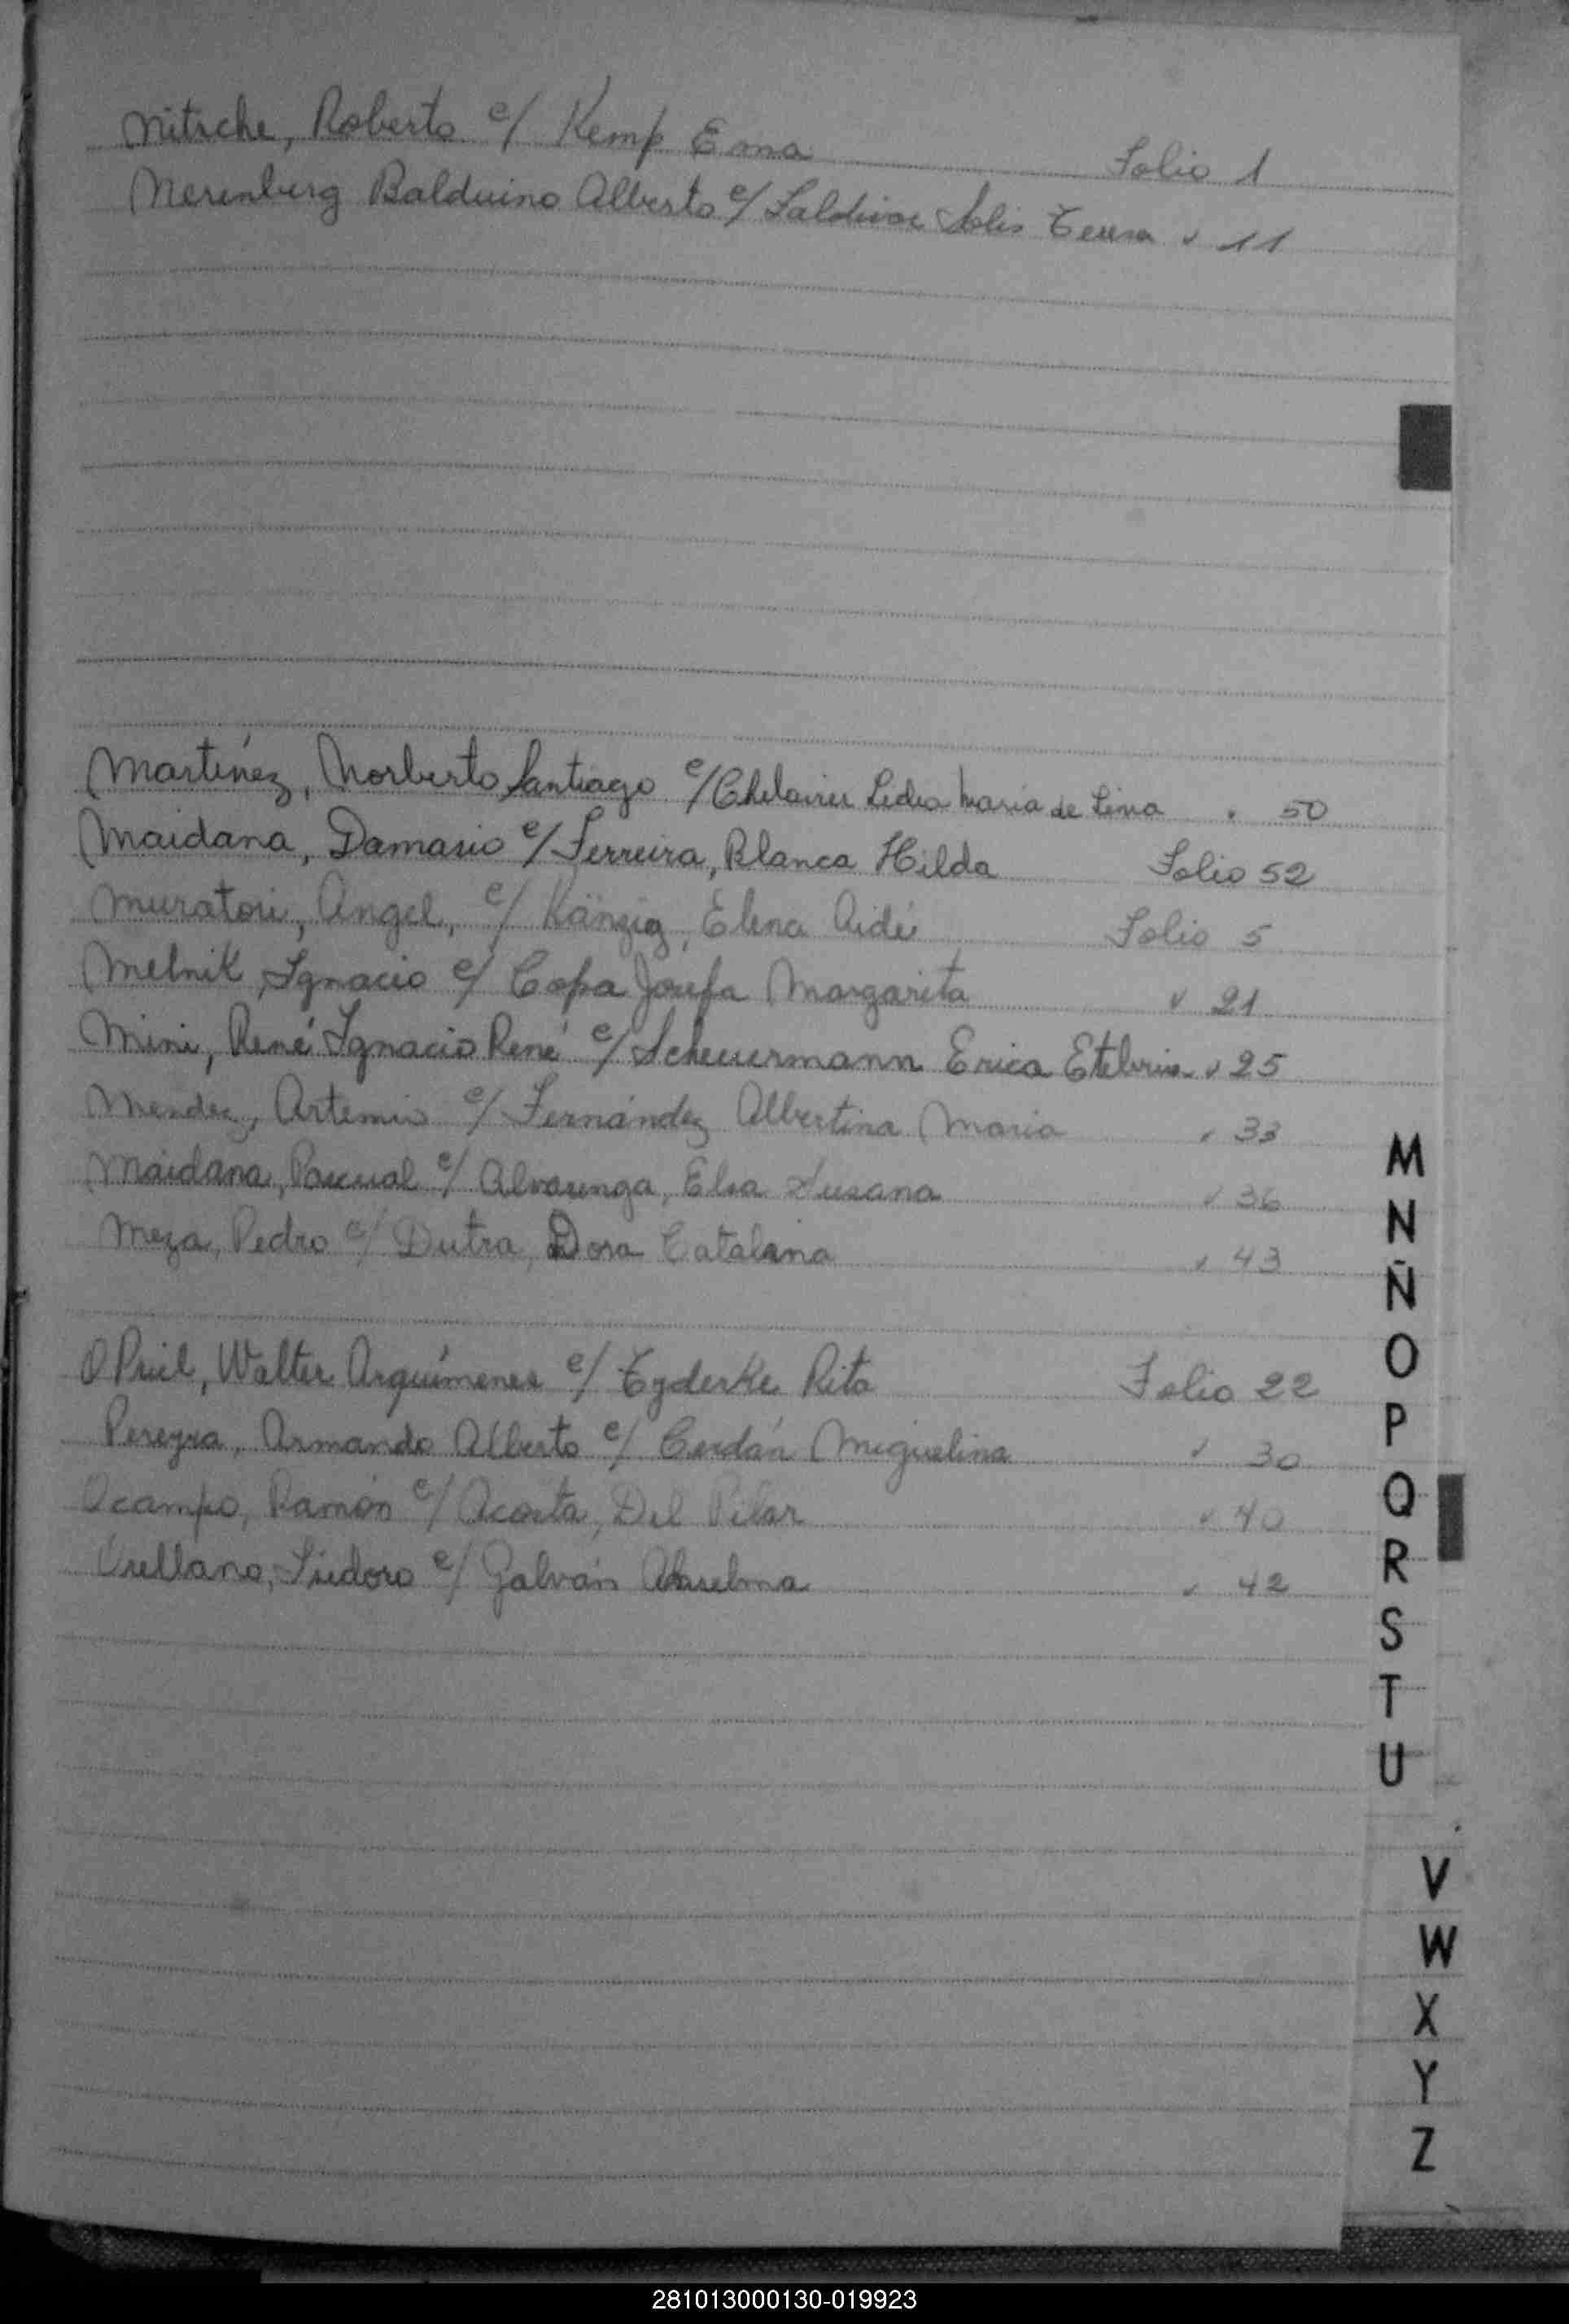 Nitsche, Roberto c/ Kemp Ema Folio 1
Nerenberg Balduino Alberto c/ Saldivar Solis Teresa " 11
Martínez, Norberto Santiago c/ Lidia María de Lina " 50
Maidana, Damasio c/ Ferreira, Blanca Hilda Folio 52
Muratori, Angel, c/ Känzig, Elena Aidé Folio 5
Melnik, Ignacio c/ Copa Josefa Margarita " 21
Mini, René Ignacio René c/ Scheuermann Erica Etelvina " 25
Mendez, Artemio c/ Fernández Albertina Maria " 33
Maidana, Pascual c/ Alvarenga, Elsa Susana " 36
Meza, Pedro c/ Dutra, Dora Catalina " 43
Walter Arquímenes c/ Rita Folio 22
Pereyra, Armando Alberto c/ Cerdán Miguelina " 30
Ocampo, Ramón c/ Acosta, Del Pilar " 40
Orellano, Isidoro c/ Galván Anselma " 42
M
N
Ñ
O
P
Q
R
S
T
U
V
W
X
Y
Z
281013000130-019923